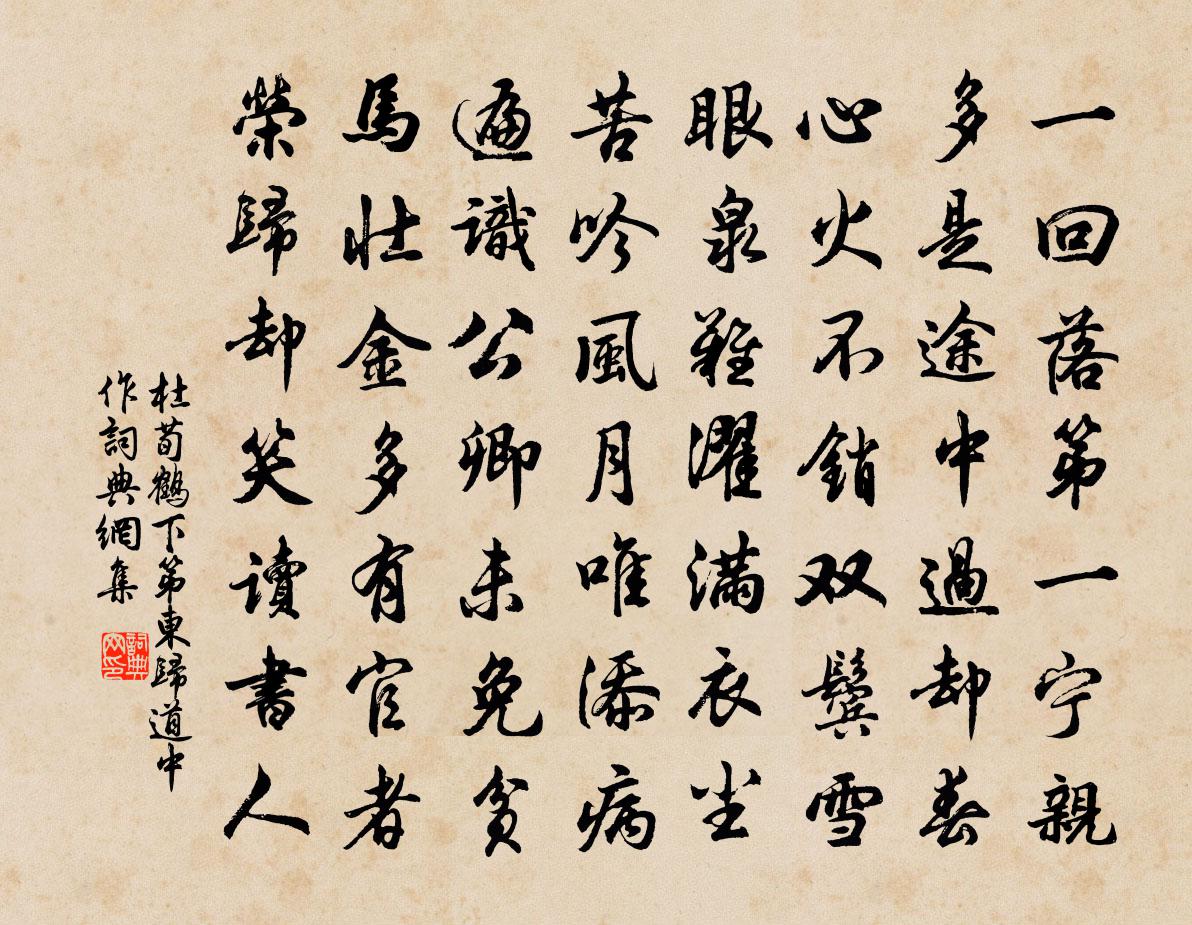 一回落第一宁親
多是途中過却春
心火不銷双鬓雪
眼泉難濯滿衣尘
苦吟風月唯添病
遍識公卿未免貧
馬壮金多有官者
榮歸却笑讀書人
杜荀鶴下第東歸道中
作詞典網集
詞典网印